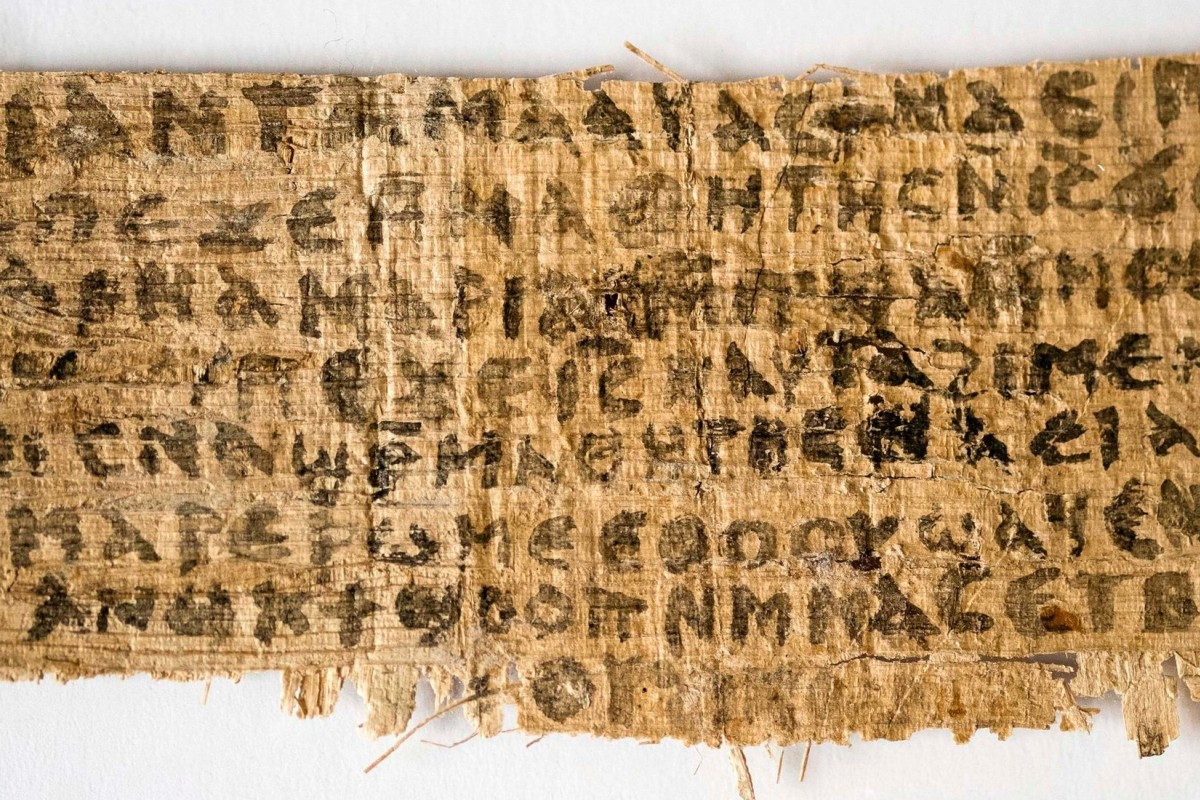 ⲁⲛ ⲧⲁⲙⲁⲁⲩ ⲁⲥϯ ⲛⲁⲉⲓ
ⲡⲉϫⲉ ⲙⲙⲁⲑⲏⲧⲏⲥ ⲛⲓ̅ⲥ̅ ϫⲉ
ⲁⲣⲛⲁ ⲙⲁⲣⲓⲁⲙ
ⲡⲉϫⲉ ⲓ̅ⲥ̅ ⲛⲁⲩ ⲧⲁϩⲓⲙⲉ
ⲥⲛⲁϣⲣ̅ⲙⲁⲑⲏⲧⲏⲥ ⲛⲁⲉⲓ ⲁ
ⲙⲁⲣⲉⲣⲱⲙⲉ ⲉⲑⲟⲟⲩ ϣⲁϥⲉ
ⲁⲛⲟⲕ ϯϣⲟⲟⲡ ⲛⲙⲙⲁⲥ ⲉⲧⲃ